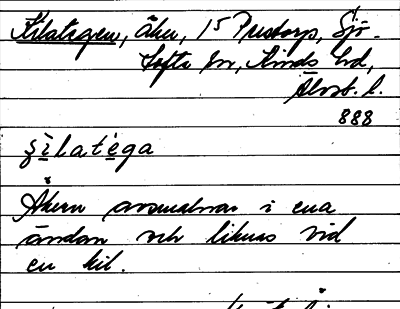 Kilategen, åker, 15 Prestorp, Sjö-
tofta sn, Kinds hd,
Älvsb. l.
888
šìlatèga
Åkern avsmalnar i ena
ändan och liknas vid
en kil.